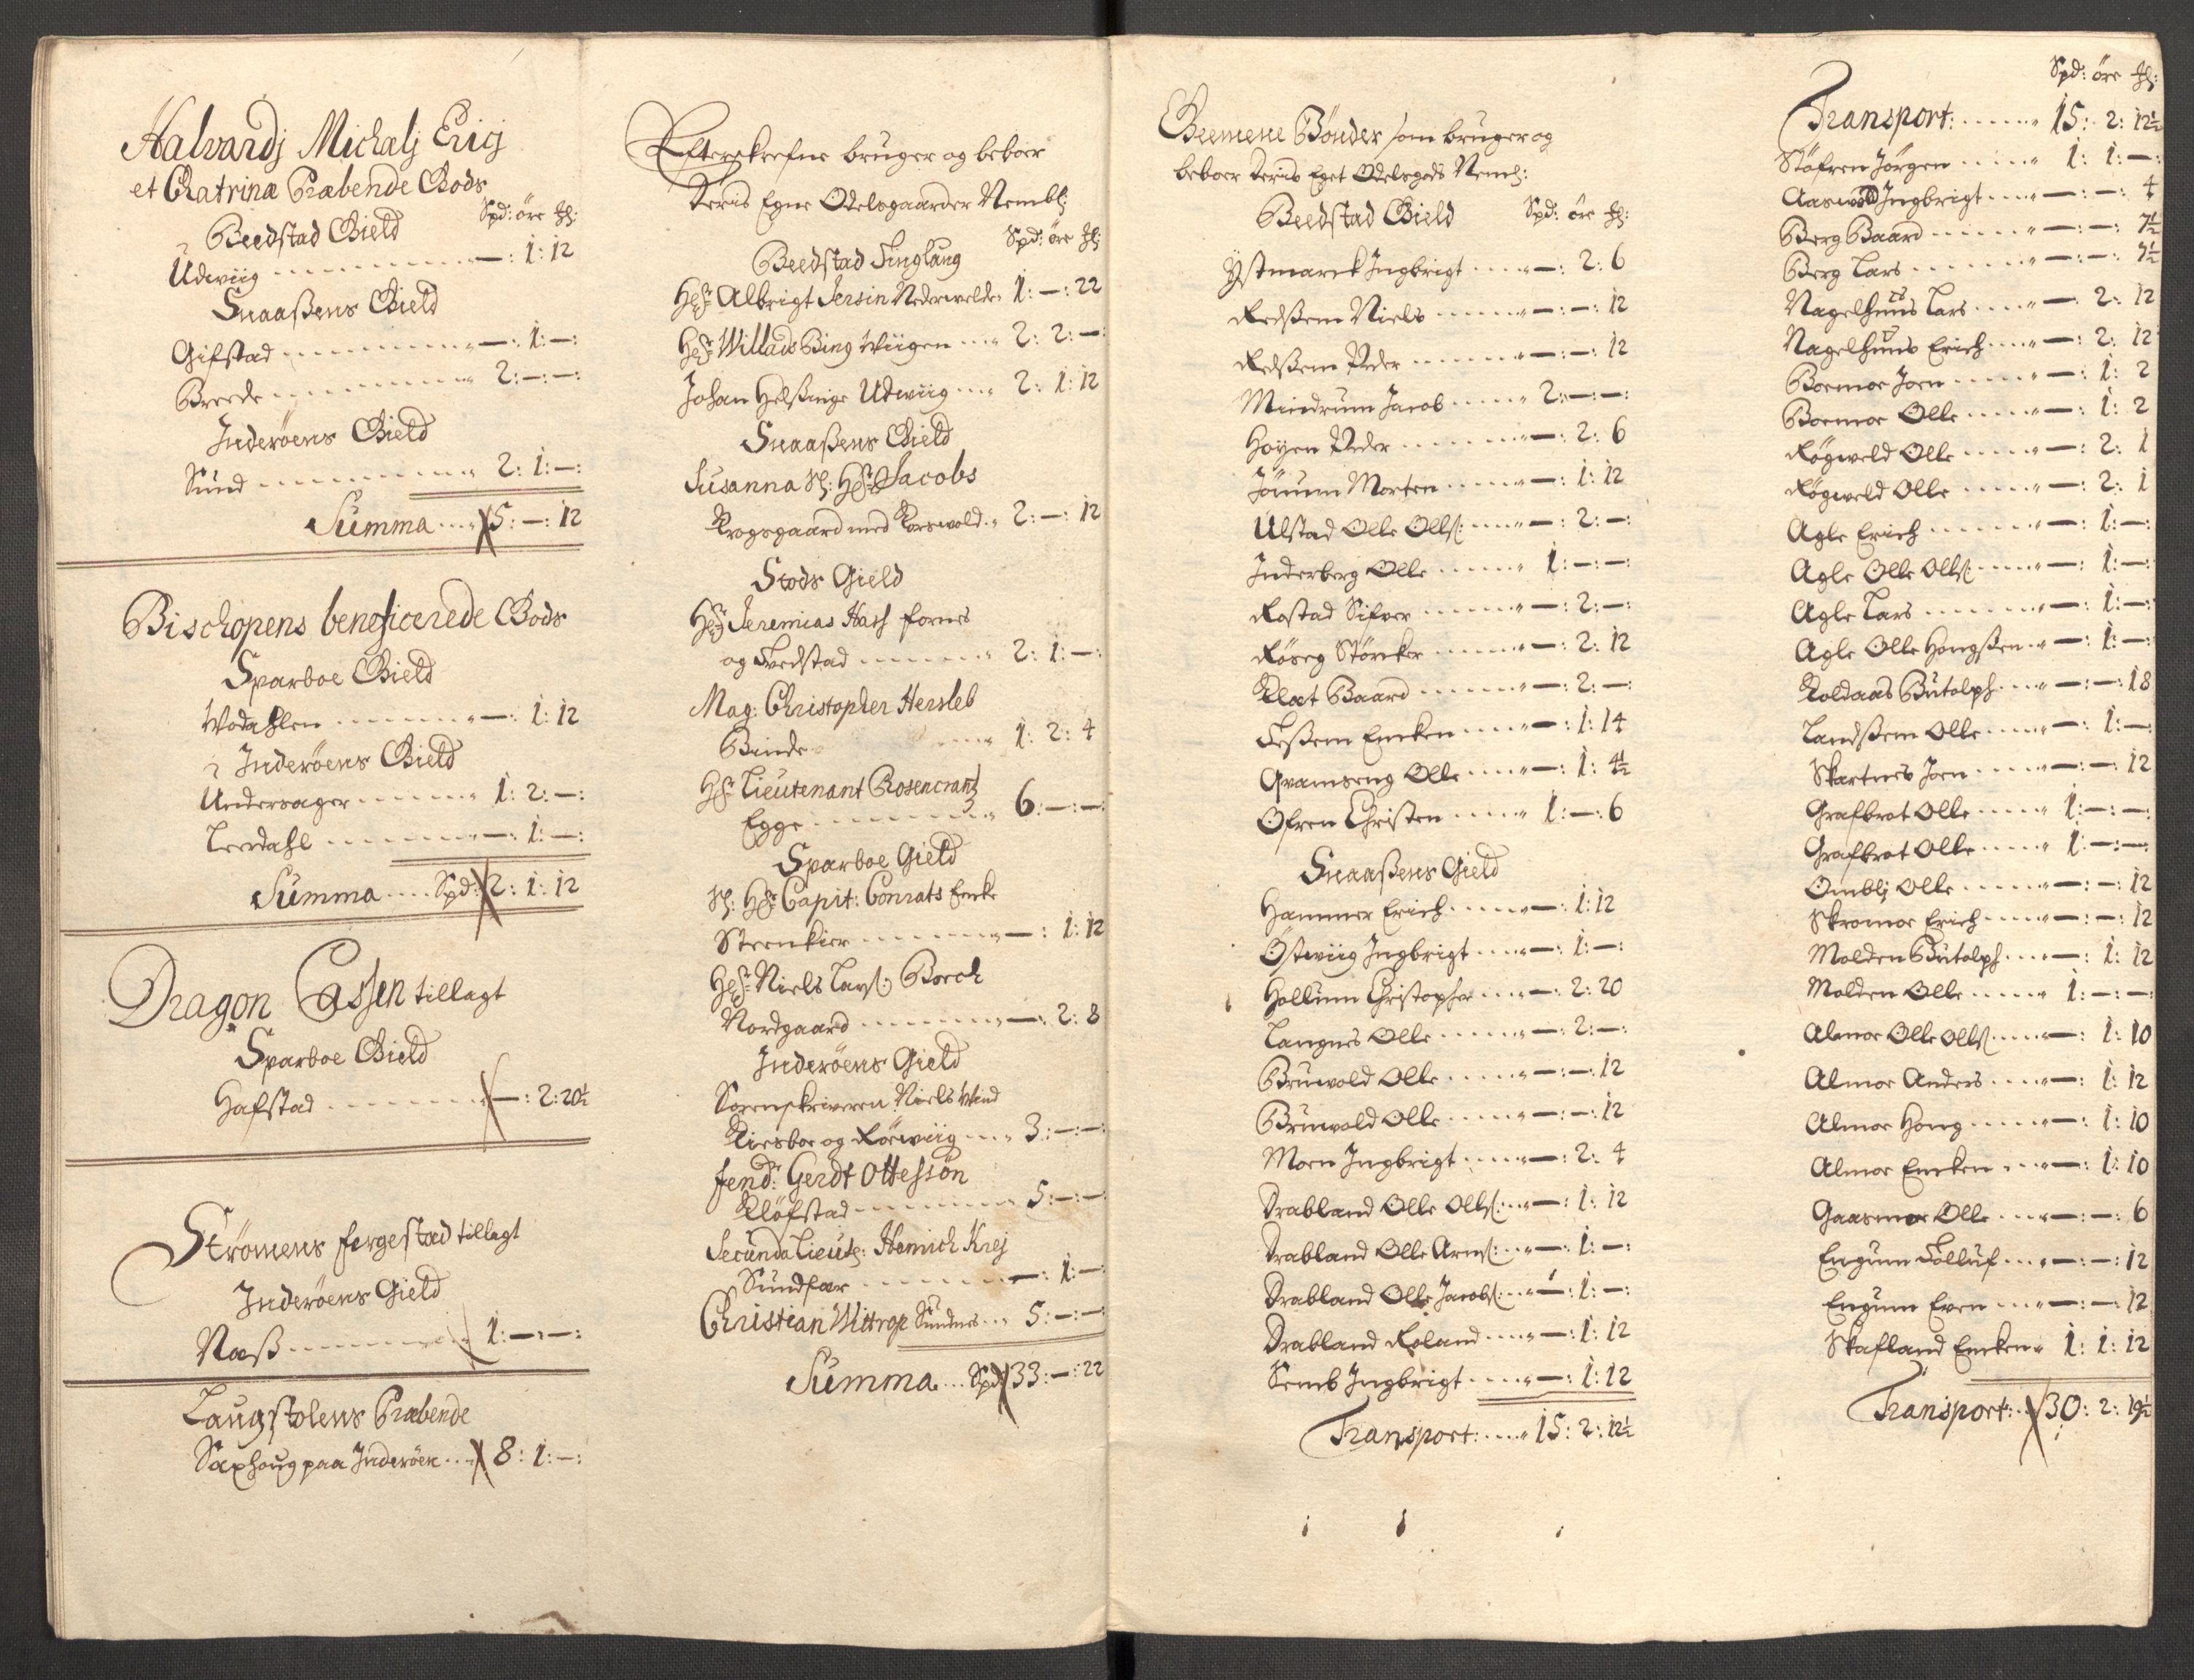 Halvardj Michalj Ericj
et Chatrinæ Præbende Gods
Spd: öre
Beedstad Gield
Udwiig —: 1: 12
Snaaßens Gield
Gifstad —: 1: —:
Breede 2: —: —:
Inderöens Gield
Sund 2: 1: —:
Summa 5: —: 12
Bischopens beneficerede Gods
Sparboe Gield
Wodahlen —: 1: 12
Inderöens Gield
Undersager 1: 2: —:
Leerdahl —: 1: —:
Summa Spd: 2: 1: 12
Dragon Cassen tillagt
Sparboe Gield
Hafstad —: 2: 20½
Strömens fergestad tillagt
Inderöens Gield
Næß 1: —: —:
Laugstolens Præbende
Saxhoug paa Inderöen 8: 1: —:
Efterskrefne bruger og beboer
deris Egne Odelsgaarder Nembl:
Spd: öre
Beedstad Tinglaug
Hr: Albrigt Jersin Nederwelde 1: —: 22
Hr: Willads Bing Wiigen 2: 2: —:
Johan Helßinge Udwiig 2: 1: 12
Snaaßens Gield
Susanna Sl: Hr: Jacobs
Krogsgaard med Korswold 2: —: 12
Stods Gield
Hr: Jeremias Hass fornes
og Tvedstad 2: 1: —:
Mag: Christopher Hersleb
Binde 1: 2: 4
Hr: Lieutenant Rosencrantz
Egge 6: —: —:
Sparboe Gield
Sl: Hr: Capit: Conrats Encke
Steenkier —: 1: 12
Hr: Niels Lars: Borch
Nordgaard —: 2: 8
Inderöens Gield
Sorenskriveren Niels Wind
Kirsboe og Rörwiig 3: —: —:
fend: Gerdt Ottessön
Klöfstad 5: —: —:
Secunda Lieut: Henrich Krej
Sundfær —: 1: —:
Christian Wittrop Sundnes 5: —: —:
Summa Spd 33: —: 22
Gemene Bönder som bruger og
beboer deris Eget Odelsgods Neml:
Beedstad Gield Spd: öre
Ystmarck Ingbrigt —: 2: 6
Redßem Niels —: —: 12
Redßem Peder —: —: 12
Mindrum Jacob 2: —: —:
Hoyen Peder —: 2: 6
Jönum Morten —: 1: 12
Ulstad Olle Olls: —: 2: —:
Inderberg Olle 1: —: —:
Rostad Sifver —: 2: —:
Röseg Störcker —: 2: 12
Klæt Baard —: 2: —:
Teßem Encken —: 1: 14
Qvamseng Olle —: 1: 4½
Ofren Christen 1: —: 6
Snaaßens Gield
Hammer Erich —: 1: 12
Östwiig Ingbrigt —: 1: —:
Hollum Christopher —: 2: 20
Langnes Olle —: 2: —:
Bruwold Olle —: —: 12
Bruwold Olle —: —: 12
Moen Ingbrigt —: 2: 4
Drabland Olle Olls: —: 1: 12
Drabland Olle Arns: —: 1: —:
Drabland Olle Jacobs: —: 1: —:
Drabland Roland —: 1: 12
Semb Ingbrigt —: 1: 12
Transport: 15: 2: 12½
Spd: öre
Transport: 15: 2: 12½
Stöfren Jörgen 1: 1: —:
Aaswold Ingbrigt —: —: 4
Berg Baard —: —: 7½
Berg Lars —: —: 7½
Nagelhuus Lars —: 2: 12
Nagelhuus Erich —: 2: 12
Boemoe Joen —: 1: 2
Boemoe Olle —: 1: 2
Rögweld Olle —: 2: 1
Rögweld Olle —: 2: 1
Agle Erich —: 1: —:
Agle Olle Olls: —: 1: —:
Agle Lars —: 1: —:
Agle Olle Hongßen —: 1: —:
Koldaas Butolph —: —: 18
Landßem Olle —: 1: —:
Skartnes Joen —: —: 12
Grafbrot Olle 1: —: —:
Grafbrot Olle 1: —: —:
Omblj Olle —: —: 12
Skromoe Erich —: —: 12
Molden Butolph —: 1: 12
Molden Olle 1: —: —:
Almoe Olle Olls —: 1: 10
Almoe Anders —: 1: 12
Almoe Hong —: 1: 10
Almoe Encken —: 1: 10
Gaasmoe Olle —: —: 6
Engum Tolluf —: —: 12
Engum Even —: —: 12
Skafland Encken 1: 1: 12
Transport: 30: 2: 19½